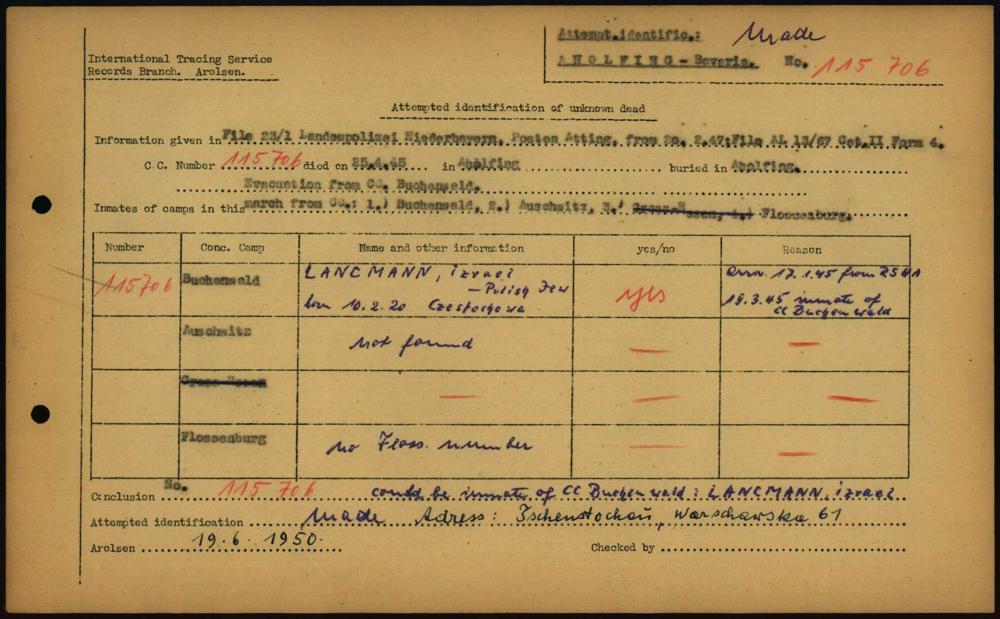 Attempt.identific.: Made
International Tracing Service
Records Branch. Arolsen.
AHOLFING - Bavaria. No. 115 706
Attempted identification of unknown dead
Information given in File 23/1 Landespolizei Niederbayern, Posten Atting, from 20. 2.47:File AL 13/67 Cat.II Form 4.
C.C. Number 115706 died on 25.4.45 in Aholfing buried in Aholfing.
Evacuation from CC. Buchenwald.
Inmates of camps in this march from CC.: 1.) Buchenwald, 2.) Auschwitz, 3.) Flossenburg.
Number Conc. Camp Name and other information yes/no Reason
115706 Buchenwald LANCMANN, Izrael
— Polish Jew
born 10.2.20 Czestochowa
yes
17.1.45 from
19.3.45 inmate of
CC Buchenwald
Auschwitz not found — —
Gross-Rosen — — —
Flossenburg no Floss. number — —
Conclusion No. 115 706 could be inmate of CC Buchenwald: LANCMANN, Izrael
Attempted identification Made Adress: Tschenstochau, Warschawska 61
Arolsen 19.6.1950. Checked by